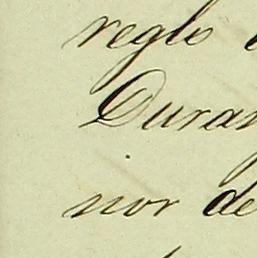 reglo
Duran
nor de